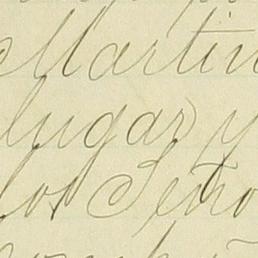 Martin
lugar y
los Seño